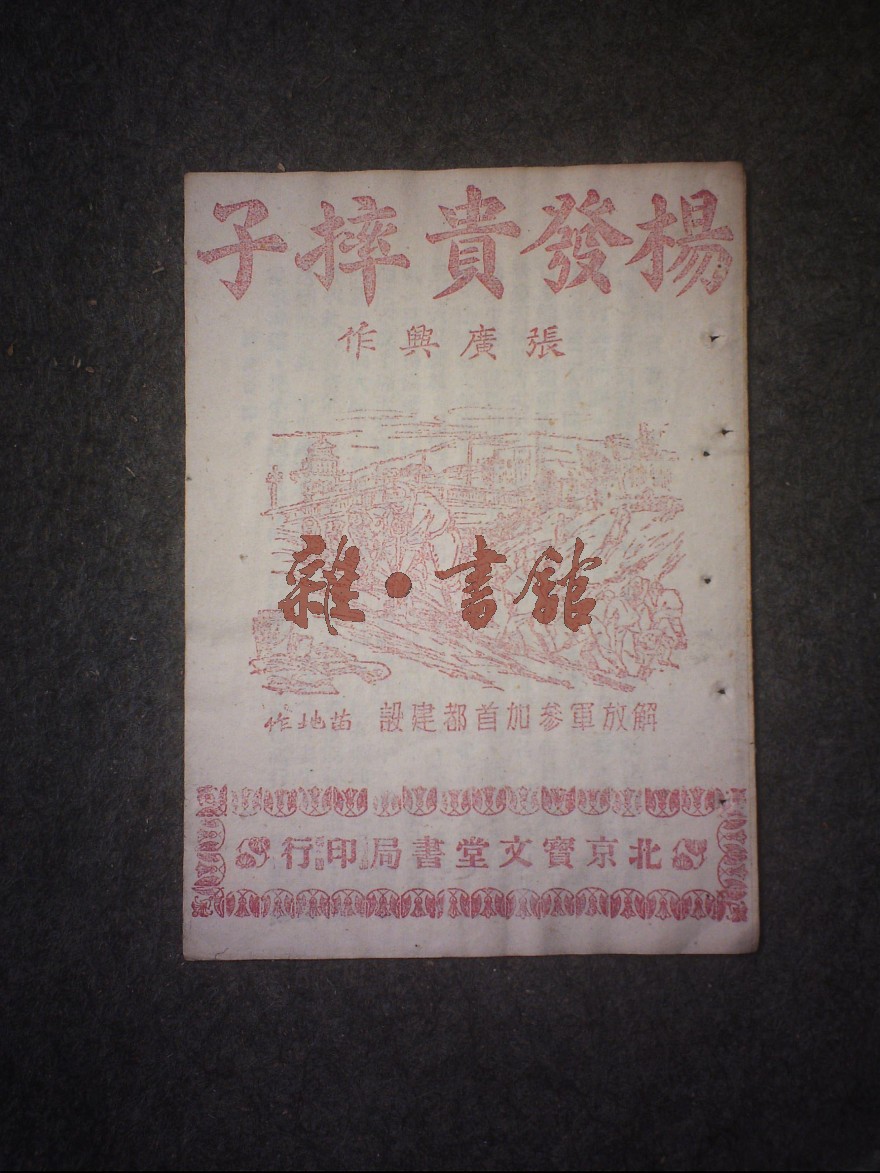 楊發貴摔子
張廣興作
雜·書館
解放軍參加首都建設 苗地作
北京寶文堂書局印行